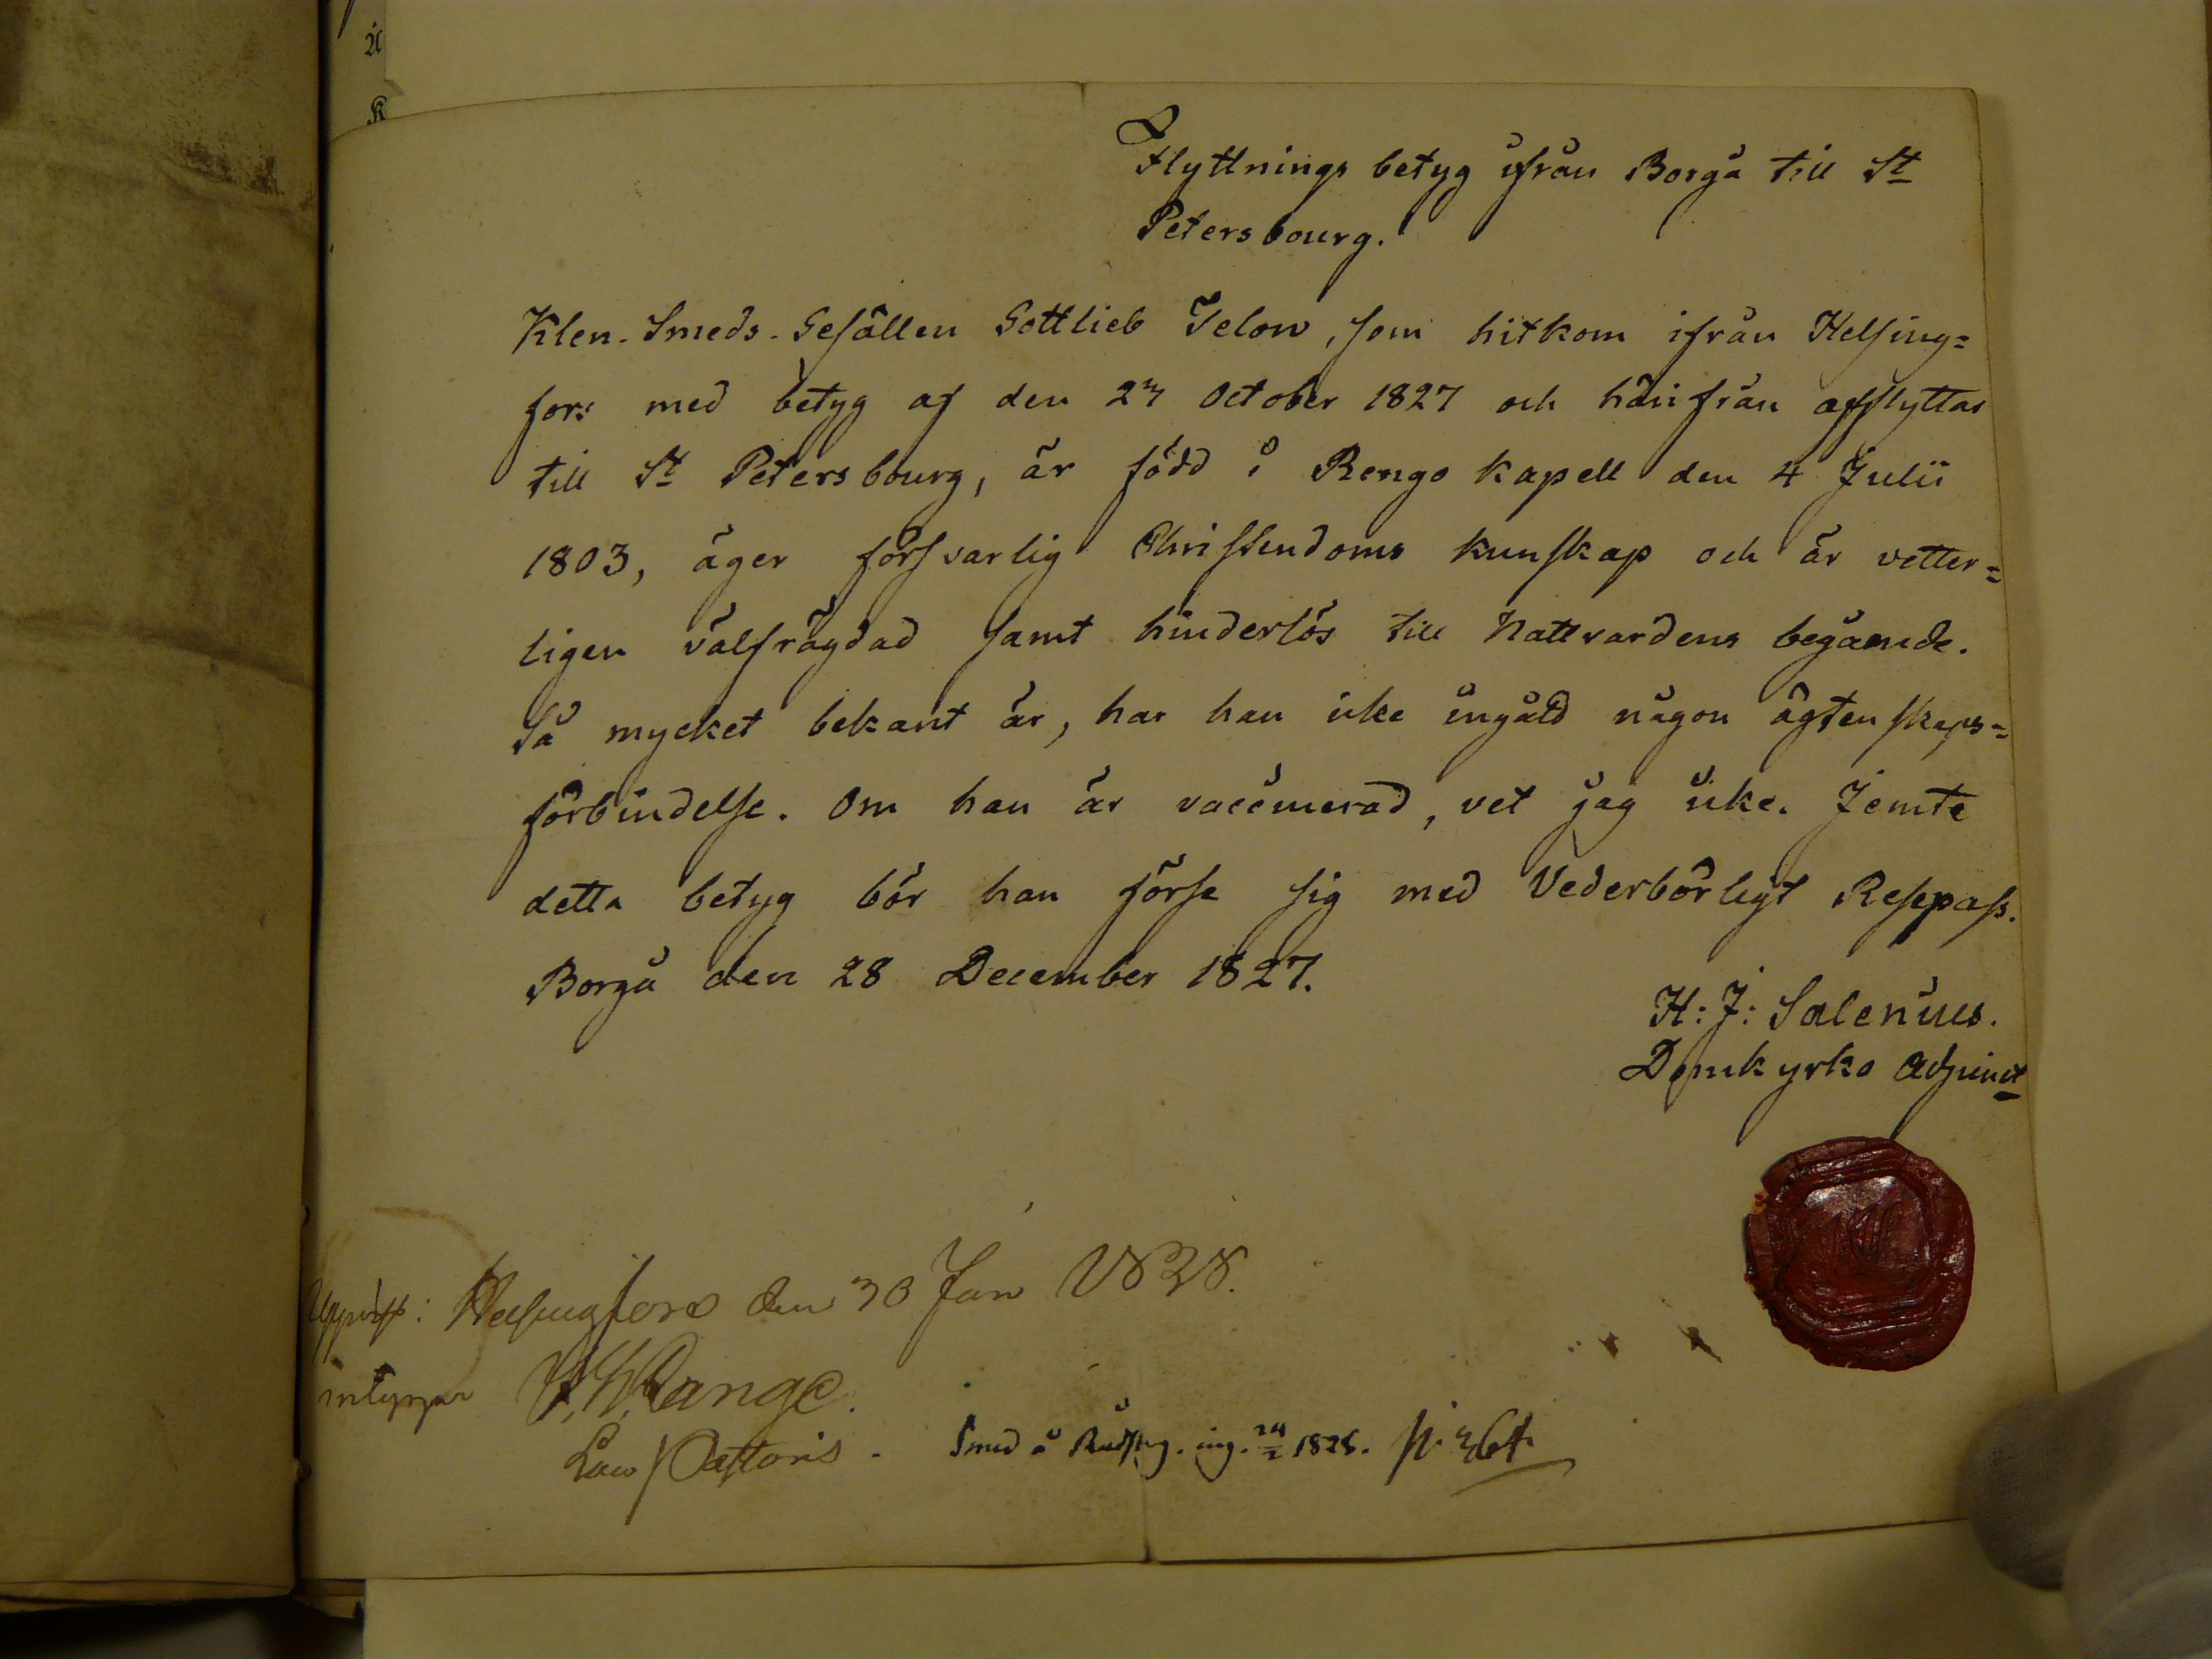 Flyttnings betyg ifrån Borgå till St
Petersbourg.
Klen-Smeds-Gesällen Gottlieb Telow, som hitkom ifrån Helsing=
fors med betyg af den 27 October 1827 och härifrån afflyttar
till St Petersbourg, är född i Rengo Kapell den 4 Julii
1803, äger försvarlig Christendoms kunskap och är vetter=
ligen välfrägdad samt hinderlös till Nattvardens begående.
Så mycket bekant är, har han icke ingått någon ägtenskaps=
förbindelse. Om han är vaccinerad, vet jag icke. Jemte
detta betyg bör han förse sig med Vederbörligt Respass.
Borgå den 28 December 1827.
H: J: Salenius.
Domkyrko Adjunct
Uppvist: Helsingfors den 30 Jan 1828.
intygar
Pastoris.
Smed å ing. 1828.